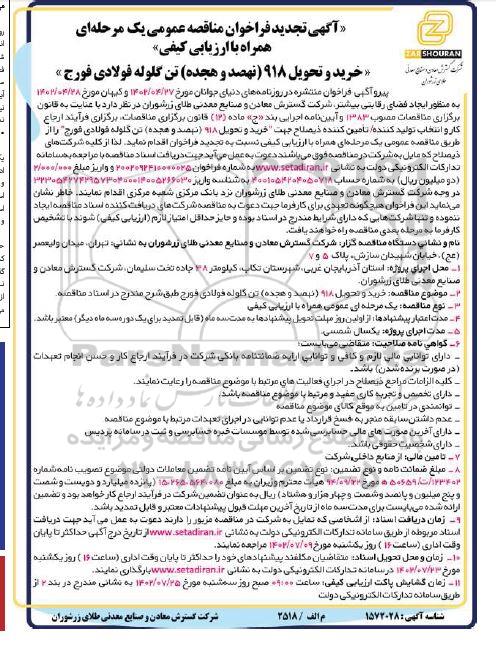 «آگهی تجدید فراخوان مناقصه عمومی یک مرحله‌ای
همراه با ارزیابی کیفی»
« خرید و تحویل ۹۱۸ (نهصد و هجده) تن گلوله فولادی فورج »
ZAR SHOURAN
پیرو آگهی فراخوان منتشره در روزنامه‌های دنیای جوانان مورخ ۱۴۰۲/۰۴/۲۷ و کیهان مورخ ۱۴۰۲/۰۴/۲۸
به منظور ایجاد فضای رقابتی بیشتر، شرکت گسترش معادن و صنایع معدنی طلای زرشوران در نظر دارد با عنایت به قانون
برگزاری مناقصات مصوب ۱۳۸۳ و آیین‌نامه اجرایی بند «ج» ماده (۱۲) قانون برگزاری مناقصات، برگزاری فرآیند ارجاع
کار و انتخاب تولید کننده/ تامین کننده ذیصلاح جهت "خرید و تحویل ۹۱۸ (نهصد و هجده) تن گلوله فولادی فورج" را از
طریق مناقصه عمومی یک مرحله‌ای همراه با ارزیابی کیفی نسبت به تجدید فراخوان اقدام نماید. لذا از کلیه شرکت‌های
ذیصلاح که مایل به شرکت در مناقصه فوق می‌باشند دعوت به عمل می‌آید جهت دریافت اسناد مناقصه با مراجعه به سامانه
تدارکات الکترونیکی دولت به نشانی www.setadiran.ir به شماره فراخوان و واریز مبلغ ۲/۰۰۰/۰۰۰
(دو میلیون ریال) به شماره حساب به شناسه واریز
در وجه شرکت گسترش معادن و صنایع معدنی طلای زرشوران نزد بانک مرکزی شعبه مرکزی اقدام نمایند. خاطر نشان
می‌نماید این فراخوان هیچگونه تعهدی برای کارفرما جهت دعوت به مناقصه شرکت‌های دریافت کننده اسناد مناقصه ایجاد
ننموده و تنها شرکت‌هایی که دارای شرایط مندرج در اسناد بوده و حایز حداقل امتیاز لازم (ارزیابی کیفی) شوند با تشخیص
کارفرما به مرحله بعدی مناقصه راه خواهند یافت.
نام و نشانی دستگاه مناقصه گزار: شرکت گسترش معادن و صنایع معدنی طلای زرشوران به نشانی: تهران، میدان ولیعصر
(عج)، خیابان شهیدان سازش، پلاک ۵ و ۷
۱- محل اجرای پروژه: استان آذربایجان غربی، شهرستان تکاب، کیلومتر ۳۸ جاده تخت سلیمان، شرکت گسترش معادن و
صنایع معدنی طلای زرشوران.
۲- موضوع مناقصه: خرید و تحویل ۹۱۸ (نهصد و هجده) تن گلوله فولادی فورج طبق شرح مندرج در اسناد مناقصه.
۳- نوع مناقصه: یک مرحله ای عمومی همراه با ارزیابی کیفی
۴- مدت اعتبار پیشنهادها: از اولین روز مهلت تحویل پیشنهادها به مدت سه ماه (قابل تمدید برای یک دوره سه ماه دیگر) معتبر باشد.
۵- مدت اجرای پروژه: یکسال شمسی.
۶- گواهی نامه صلاحیت: متقاضی می‌بایست:
- دارای توانایی مالی لازم و کافی و توانایی ارایه ضمانتنامه بانکی شرکت در فرآیند ارجاع کار و حسن انجام تعهدات
(در صورت برنده شدن) باشد.
- کلیه الزامات مراجع ذیصلاح در اجرای فعالیت های مرتبط با موضوع مناقصه را رعایت نمایند.
- دارای تخصص و تجربه کاری مفید و مرتبط با موضوع مناقصه باشد.
- توانمندی در تامین به موقع کالای موضوع مناقصه
- عدم داشتن سابقه منجر به فسخ قرارداد یا عدم توانایی در اجرای تعهدات مرتبط با موضوع مناقصه
- دارای آخرین صورت های مالی حسابرسی شده توسط موسسات خبره حسابرسی و ثبت در سامانه پردیس
- دارای شخصیت حقوقی باشد.
۷- تامین مالی: از منابع داخلی شرکت
۸- مبلغ ضمانت نامه و نوع تضمین: نوع تضمین بر اساس آیین نامه تضمین معاملات دولتی موضوع تصویب نامه شماره
۱۲۳۴۰۲/ت۵۰۶۵۹ ه مورخ ۹۴/۰۹/۲۲ هیات محترم وزیران به مبلغ ۱۵،۲۶۵،۵۶۴،۰۸۰ (پانزده میلیارد و دویست و شصت
و پنج میلیون و پانصد و شصت و چهار هزار و هشتاد) ریال به عنوان تضمین شرکت در فرآیند ارجاع کار خواهد بود و تضمین
ارائه شده می‌بایست برای مدت سه ماه از تاریخ آخرین مهلت قبول پیشنهادات معتبر و قابل تمدید باشد.
۹- زمان دریافت اسناد: از اشخاصی که تمایل به شرکت در مناقصه مزبور را دارند دعوت به عمل می آید جهت دریافت
اسناد مربوطه از طریق سامانه تدارکات الکترونیکی دولت به نشانی www.setadiran.ir از تاریخ درج آگهی حداکثر تا پایان
وقت اداری (ساعت ۱۶ ) روز یکشنبه مورخ ۱۴۰۲/۰۷/۰۹ مراجعه نمایند.
۱۰- زمان و محل تحویل اسناد: متقاضیان مکلفند پیشنهادهای خود را حداکثر تا پایان وقت اداری (ساعت ۱۶ ) روز یکشنبه
مورخ ۱۴۰۲/۰۷/۲۳ در سامانه تدارکات الکترونیکی دولت به نشانی www.setadiran.ir بارگذاری نمایند.
۱۱- زمان گشایش پاکت ارزیابی کیفی: ساعت ۰۹:۰۰ صبح روز سه‌شنبه مورخ ۱۴۰۲/۰۷/۲۵ به نشانی مندرج در بند ۲ از
طریق سامانه تدارکات الکترونیکی دولت
شناسه آگهی: ۱۵۷۲۰۲۸
م الف / ۲۵۱۸
شرکت گسترش معادن و صنایع معدنی طلای زرشوران